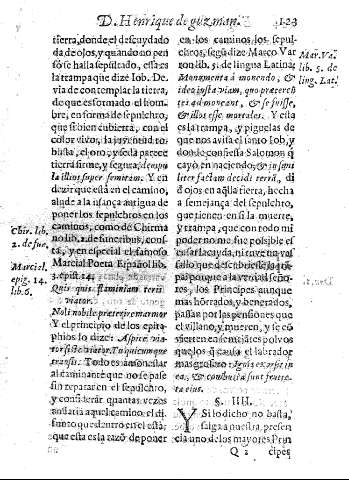 D. Henrique de guzman. 123
tierra, donde el descuydado
da de ojos, y quando no pen
só se halla sepultado, esta es
la trampa que dize Iob. De
via de contemplar la tierra,
de que es formado el hom-
bre, en forma de sepulchro,
que si bien cubierta, con el
color vivo, la juventud ro-
busta, el oro, y seda parece
tierra firme, y segura,
illius super semitam. Y en
dezir que está en el camino,
alude a la usança antigua de
poner los sepulchros en los
caminos, como de Chirma
no lib. 2. de funeribus, cons-
ta, y en especial el famoso
Marcial Poeta Español lib.
3. epist. 14.
Quis quis flaminiam teris
viator.
Noli nobile preterire marmor
Y el principio de los epita-
phios lo dize: Aspice via-
tor siste viator. Tu quicumque
transis. Todo es amonestar
al caminante que no se pase
sin reparar en el sepulchro,
y considerar quantas vezes
andaria aquel camino el di-
funto que dentro en el está:
que esta es la razõ de poner
Chir. lib.
2. de fue.
Marcial.
epig. 14.
lib. 6.
en los caminos los sepul-
chros, segũ dize Marco Var
ron lib. 5. de lingua Latina:
Monumenta á monendo, &
idea iusta viam, quo pretereũ
tes admoneant, & se fuisse,
& illos esse mortales. Y esta
es la trampa, y piguelas de
que nos avisa el santo Iob, y
donde confiessa Salomon q̃
cayó en naciendo, & in simi
liter factam decidi terrã, di
ó de ojos en aq̃lla tierra, hecha
a semejança del sepulchro,
que tienen en sí la muerte,
y trampa, que con todo mi
poder no me fue possible es
cusar la cayda, ni tuve un va
sallo que descubriesse la trã
pa
ñoles, los Principes aunque
mas hõrados, y venerados,
passan por las pensiones que
el villano, y mueren, y se cõ
vierten en essenciales polvos
que los q̃ causa el labrador
mas grosero: Ignis exorsit in
ea, & combusta sunt funera
ta eius.
§. IIII.
Y Si lo dicho no basta,
salga a nuestra presen
cia uno de los mayores Prin
Q 2 cipes
Mar. Va.
lib. 5. de
ling. Lat.